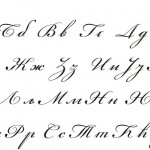 Бб Вв Гг Дд
Жж Зз Ии Јј
Мм Нн
Рр Сс Тт Ћћ